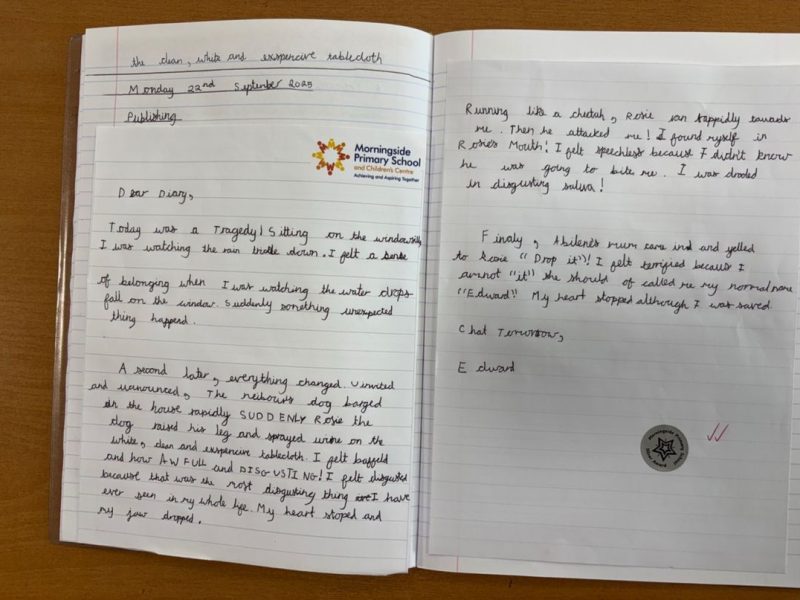 the clean, white and exspencive tablecloth
Monday 22nd September 2025
Publishing
Morningside
Primary School
and Children's Centre
Achieving and Aspiring Together
Dear Diary,
Today was a Tragedy! Sitting on the windowsill,
I was watching the rain trickle down. I felt a sense
of belonging when I was watching the water drops
fall on the window. Suddenly something unexpected
thing happend.
A second later, everything changed. Uninvited
and unanounced, The neibours dog barged
in the house rapidly SUDDENLY Rosie the
dog raised his leg and sprayed urine on the
white, clean and exspencive tablecloth. I felt baffeld
and how AWFULL and DISGUSTING! I felt disgusted
because that was the most disgusting thing I have
ever seen in my whole life. My heart stoped and
my jaw dropped.
Running like a cheetah, Rosie ran rappidly towards
me. Then he attacked me! I found myself in
Rosie's Mouth! I felt speechless because I didn't knew
he was going to bite me. I was drooled
in disgusting saliva!
Finaly, Abilene's mum came in and yelled
to Rosie "Drop it"! I felt terrified because I
am not "it" she should of called me my normal name
"Edward". My heart stopped although I was saved.
Chat Tomorrow,
Edward
Morningside Primary School